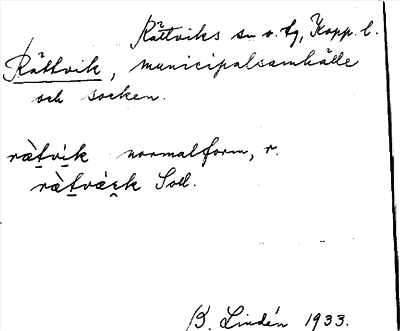 Rättviks sn o. tg, Kopp. l.
Rättvik, municipalsamhälle
och socken.
ràt̲vi̲k normalform, r.
ràt̲vák Soll.
B. Lindén 1933.